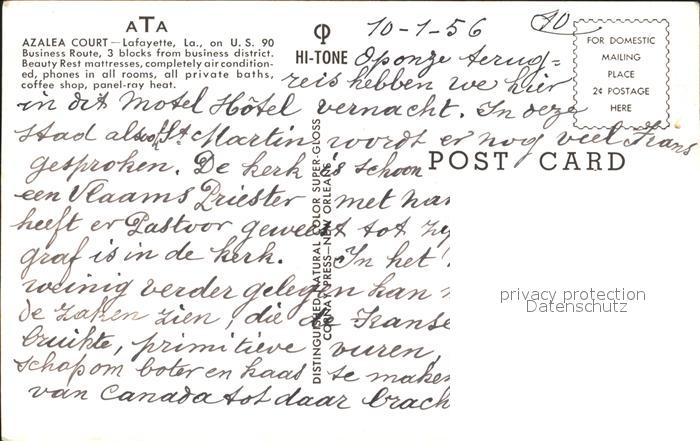 ATA
AZALEA COURT — Lafayette, La., on U. S. 90
Business Route, 3 blocks from business district.
Beauty Rest mattresses, completely air condition-
ed, phones in all rooms, all private baths,
coffee shop, panel-ray heat.
HI-TONE
DISTINGUISHED NATURAL COLOR SUPER-GLOSS
PRESS—NEW ORLEANS
FOR DOMESTIC
MAILING
PLACE
2¢ POSTAGE
HERE
POST CARD
10-1-56
Op onze terug=
reis hebben we hier
in dit Motel Hôtel vernacht. In deze
stad alsook St. Martin wordt er nog veel Frans
gesproken. De kerk is schoon
een Vlaams Priester met na
heeft er Pastoor geweest tot zy
graf is in de kerk. In het
weinig verder gelegen kan
de zaken zien, die de Franse
bruikte, primitieve vuren,
schap om boter en kaas te maken
van Canada tot daar brach
privacy protection
Datenschutz